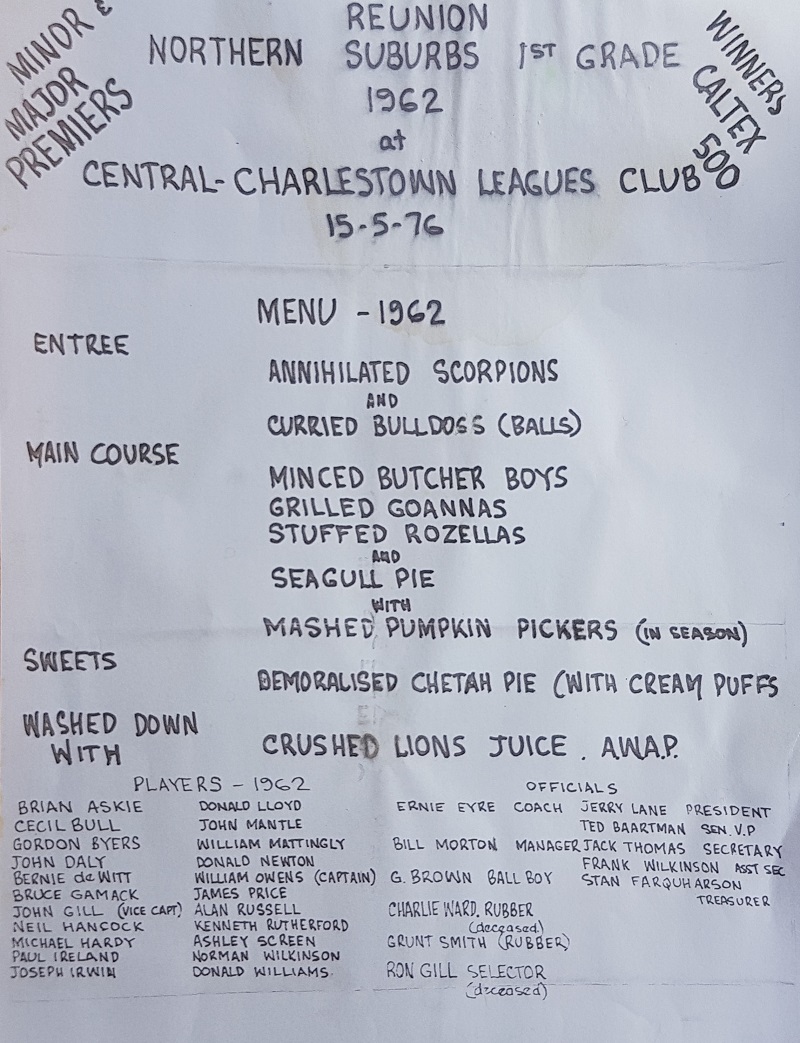 MINOR &
MAJOR
PREMIERS
REUNION
NORTHERN SUBURBS 1ST GRADE
1962
at
CENTRAL-CHARLESTOWN LEAGUES CLUB
15-5-76
WINNERS
CALTEX
500
MENU - 1962
ENTREE
ANNIHILATED SCORPIONS
AND
CURRIED BULLDOSS (BALLS)
MAIN COURSE
MINCED BUTCHER BOYS
GRILLED GOANNAS
STUFFED ROZELLAS
AND
SEAGULL PIE
WITH
MASHED PUMPKIN PICKERS (IN SEASON)
SWEETS
DEMORALISED CHETAH PIE (WITH CREAM PUFFS
WASHED DOWN
WITH
CRUSHED LIONS JUICE . A.W.A.P.
PLAYERS - 1962
BRIAN ASKIE
CECIL BULL
GORDON BYERS
JOHN DALY
BERNIE de WITT
BRUCE GAMACK
JOHN GILL (VICE CAPT)
NEIL HANCOCK
MICHAEL HARDY
PAUL IRELAND
JOSEPH IRWIN
DONALD LLOYD
JOHN MANTLE
WILLIAM MATTINGLY
DONALD NEWTON
WILLIAM OWENS (CAPTAIN)
JAMES PRICE
ALAN RUSSELL
KENNETH RUTHERFORD
ASHLEY SCREEN
NORMAN WILKINSON
DONALD WILLIAMS.
OFFICIALS
ERNIE EYRE COACH
BILL MORTON MANAGER
G. BROWN BALL BOY
CHARLIE WARD. RUBBER
(deceased)
GRUNT SMITH (RUBBER)
RON GILL SELECTOR
(deceased)
JERRY LANE PRESIDENT
TED BAARTMAN SEN. V.P
JACK THOMAS SECRETARY
FRANK WILKINSON ASST SEC
STAN FARQUHARSON
TREASURER